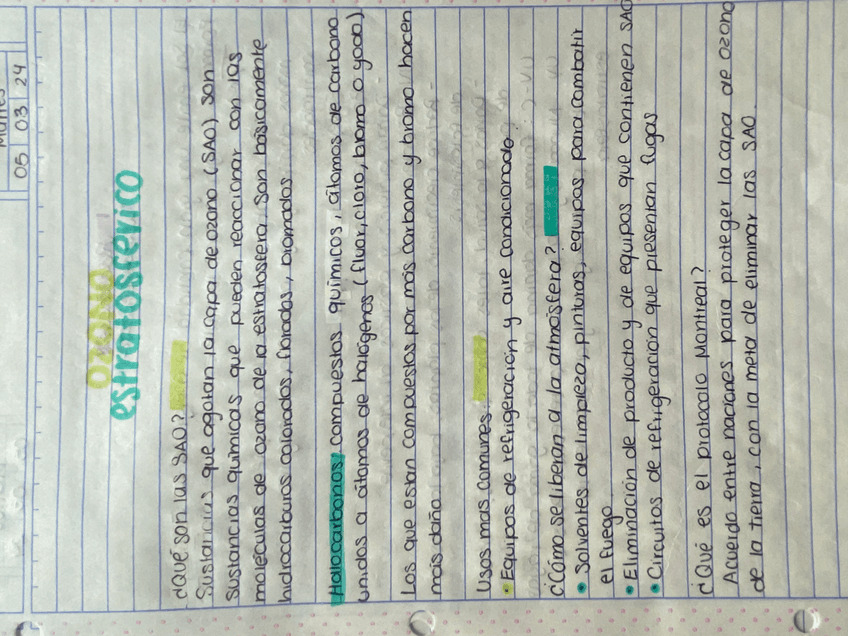 Martes
05 03 24
OZONO
estratosferico
¿Qué son las SAO?
Sustancias que agotan la capa de ozono (SAO) son
sustancias químicas que pueden reaccionar con las
moleculas de ozono de la estratosfera. Son basicamente
hidrocarburos colorados, florados, bromados
Halocarbonos, compuestos químicos, átomos de carbono
unidos a átomos de halógenos (fluor, cloro, bromo o yodo)
Los que estan compuestos por mas carbono y bromo hacen
mas daño
Usos mas comunes
• Equipos de refrigeración y aire condicionado.
¿Cómo se liberan a la atmosfera?
• Solventes de limpieza, pinturas, equipos para combatir
el fuego
• Eliminación de producto y de equipos que contienen SAO
• Circuitos de refrigeración que presentan fugas
¿Qué es el protocolo Montreal?
Acuerdo entre naciones para proteger la capa de ozono
de la tierra, con la meta de eliminar las SAO.